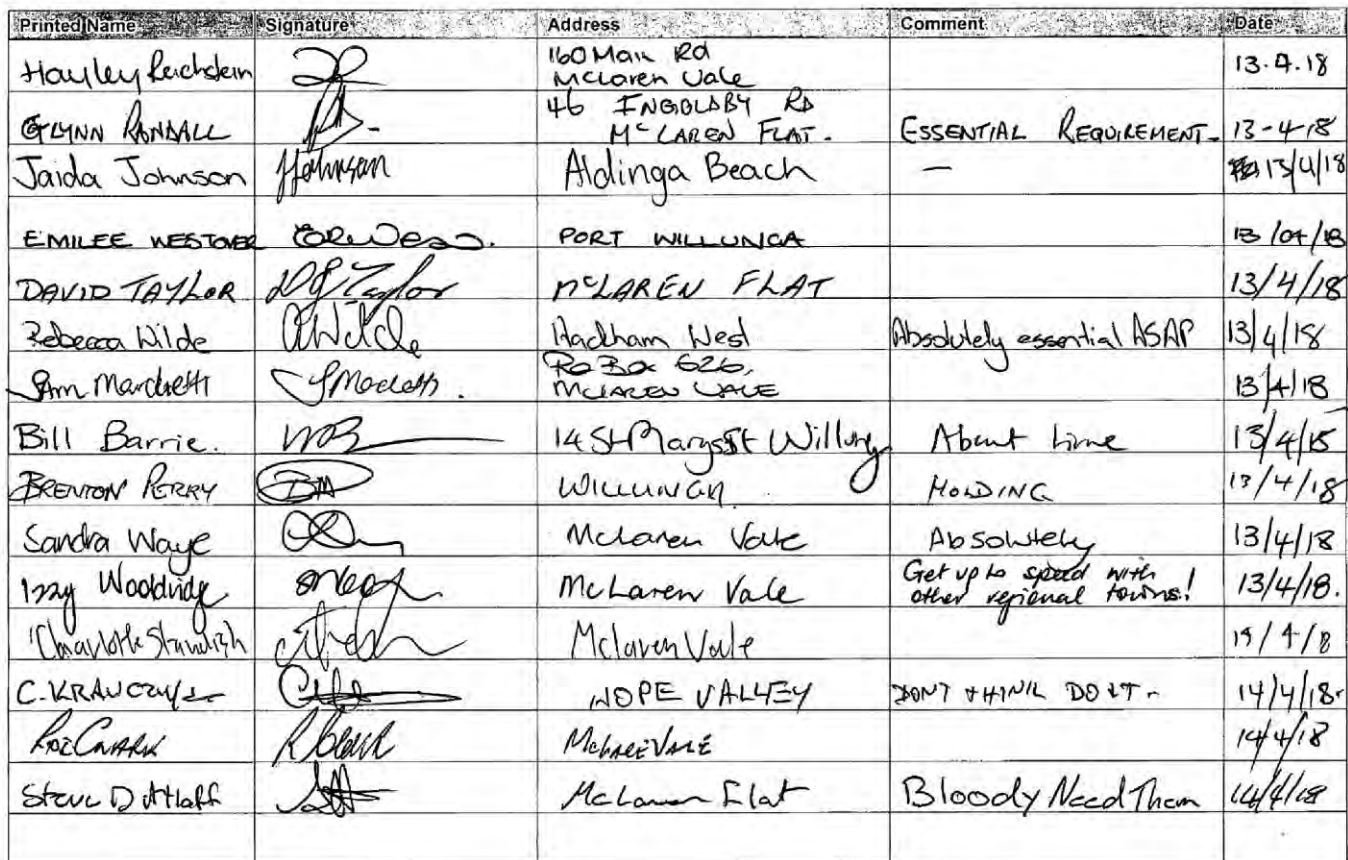 Printed Name Signature Address Comment Date
Hayley Reichstein 160 Main Rd
McLaren Vale 13.4.18
GLYNN RANDALL 46 INGOLDBY RD
McLAREN FLAT. ESSENTIAL REQUIREMENT. 13-4-18
Jaida Johnson JJohnson Aldinga Beach — 13/4/18
EMILEE WESTOVER PORT WILLUNGA 13/04/18
DAVID TAYLOR DJ Taylor McLAREN FLAT 13/4/18
Rebecca Wilde RWilde Hackham West Absolutely essential ASAP 13/4/18
Marchetti Po Box 626,
McLAREN VALE 13/4/18
Bill Barrie. 14 St Marys St Willunga About time 13/4/18
BRENTON PERRY WILLUNGA HOLDING 13/4/18
Sandra Waye McLaren Vale Absolutely 13/4/18
Izzy Wooldridge McLaren Vale Get up to speed with
other regional towns! 13/4/18.
Charlotte Standish McLaren Vale
C. HOPE VALLEY DONT THINK DO IT - 14/4/18.
14/4/18
Steve McLaren Flat Bloody Need Them 14/4/18